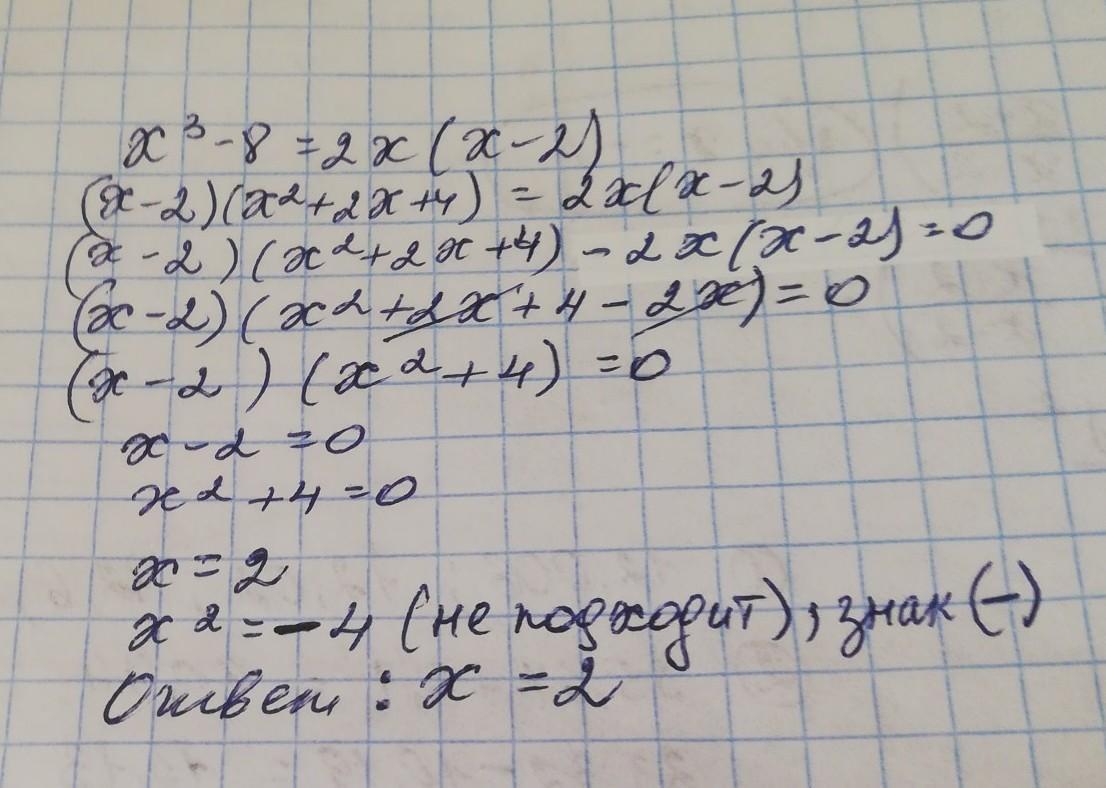 x³-8 = 2x(x-2)
(x-2)(x²+2x+4) = 2x(x-2)
(x-2)(x²+2x+4) - 2x(x-2) = 0
(x-2)(x²+2x+4-2x) = 0
(x-2)(x²+4) = 0
x-2 = 0
x²+4 = 0
x = 2
x² = -4 (не подходит), знак (-)
Ответ: x = 2